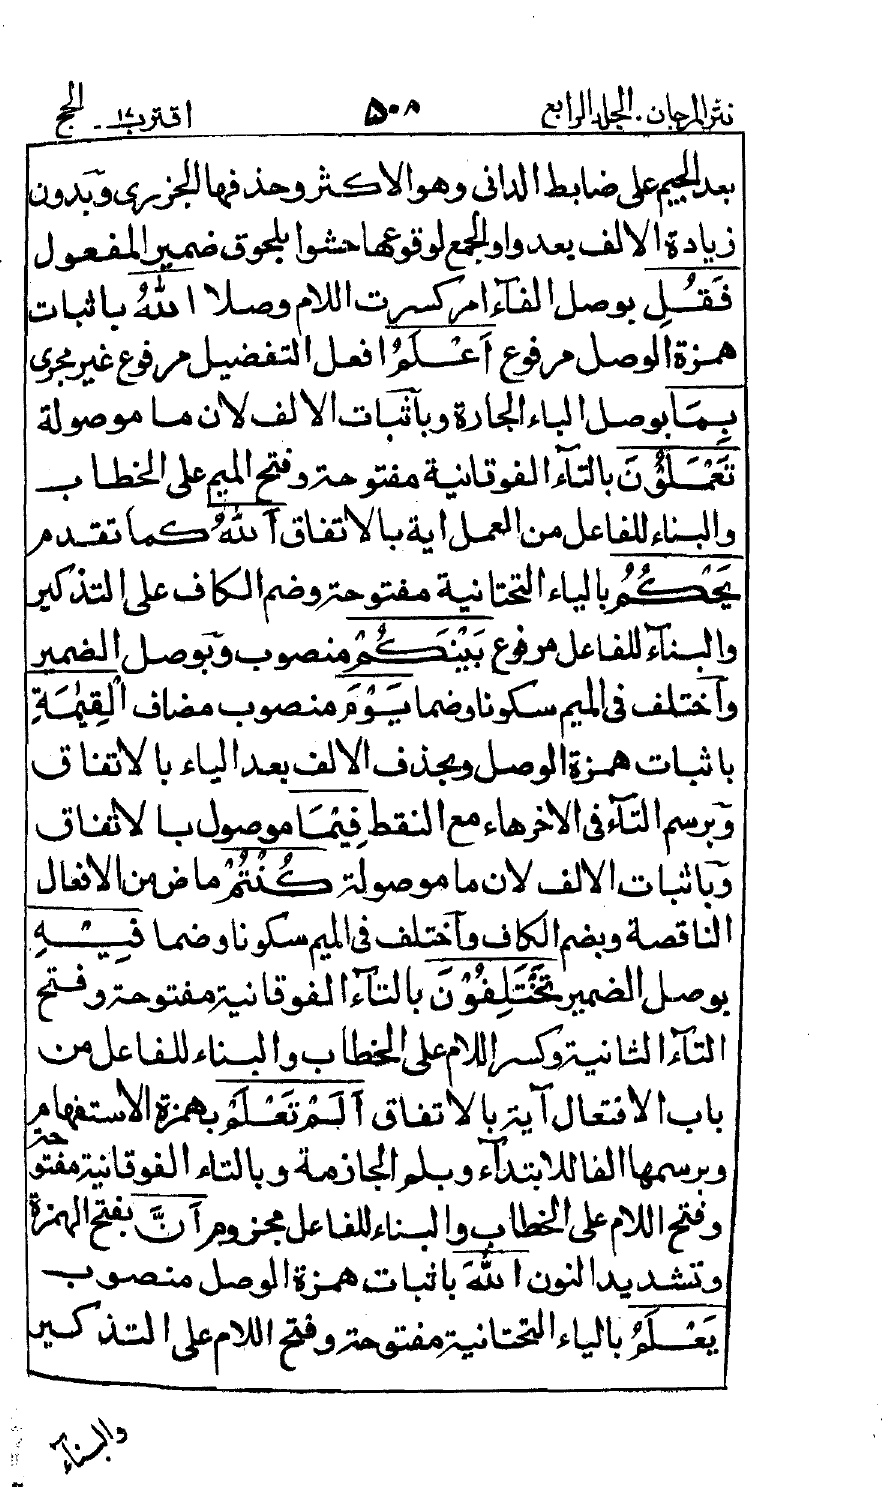 نثر المرجان. المجلد الرابع ۵۰۸ اقترب ۱۷ الحج
بعد الجيم على ضابط الدانى وهو الاكثر وحذفها الجزرى وَبدون
زيادة الالف بعد واو الجمع لوقوعها حشوا بلحوق ضمير المفعول
فَقُلِ بوصل الفآء امر كسرت اللام وصلا اللهُ باثبات
همزة الوصل مرفوع اَعْلَمُ افعل التفضيل مرفوع غير مجرى
بِمَا بوصل الباء الجارة وبآثبات الالف لان ما موصولة
تَعْمَلُوْنَ بالتآء الفوقانية مفتوحة وفتح الميم على الخطاب
والبناء للفاعل من العمل اية بالاتفاق اَللهُ كما تقدم
يَحْكُمُ بالياء التحتانية مفتوحة وضم الكاف على التذكير
والبنآء للفاعل مرفوع بَيْنَكُمْ منصوب وَبوصل الضمير
وآختلف فى الميم سكونا وضما يَوْمَ منصوب مضاف الْقِيٰمَةِ
باثبات همزة الوصل وبحذف الالف بعد الياء بالاتفاق
وَبرسم التآء فى الاخر هاء مع النقط فِيْمَا موصول بالاتفاق
وَباثبات الالف لان ما موصولة كُنْتُمْ ماض من الافعال
الناقصة وبضم الكاف وآختلف فى الميم سكونا وضما فِيْهِ
بوصل الضمير تَخْتَلِفُوْنَ بالتآء الفوقانية مفتوحة وفتح
التآء الثانية وكسر اللام على الخطاب والبناء للفاعل من
باب الافتعال آية بالاتفاق اَلَمْ تَعْلَمْ بهمزة الاستفهام
وبرسمها الفا للابتدآء وبلم الجازمة وبالتاء الفوقانية مفتوحة
وفتح اللام على الخطاب والبناء للفاعل مجزوم اَنَّ بفتح الهمزة
وتشديد النون اللهَ باثبات همزة الوصل منصوب
يَعْلَمُ بالياء التحتانية مفتوحة وفتح اللام على التذكير
والبنآء